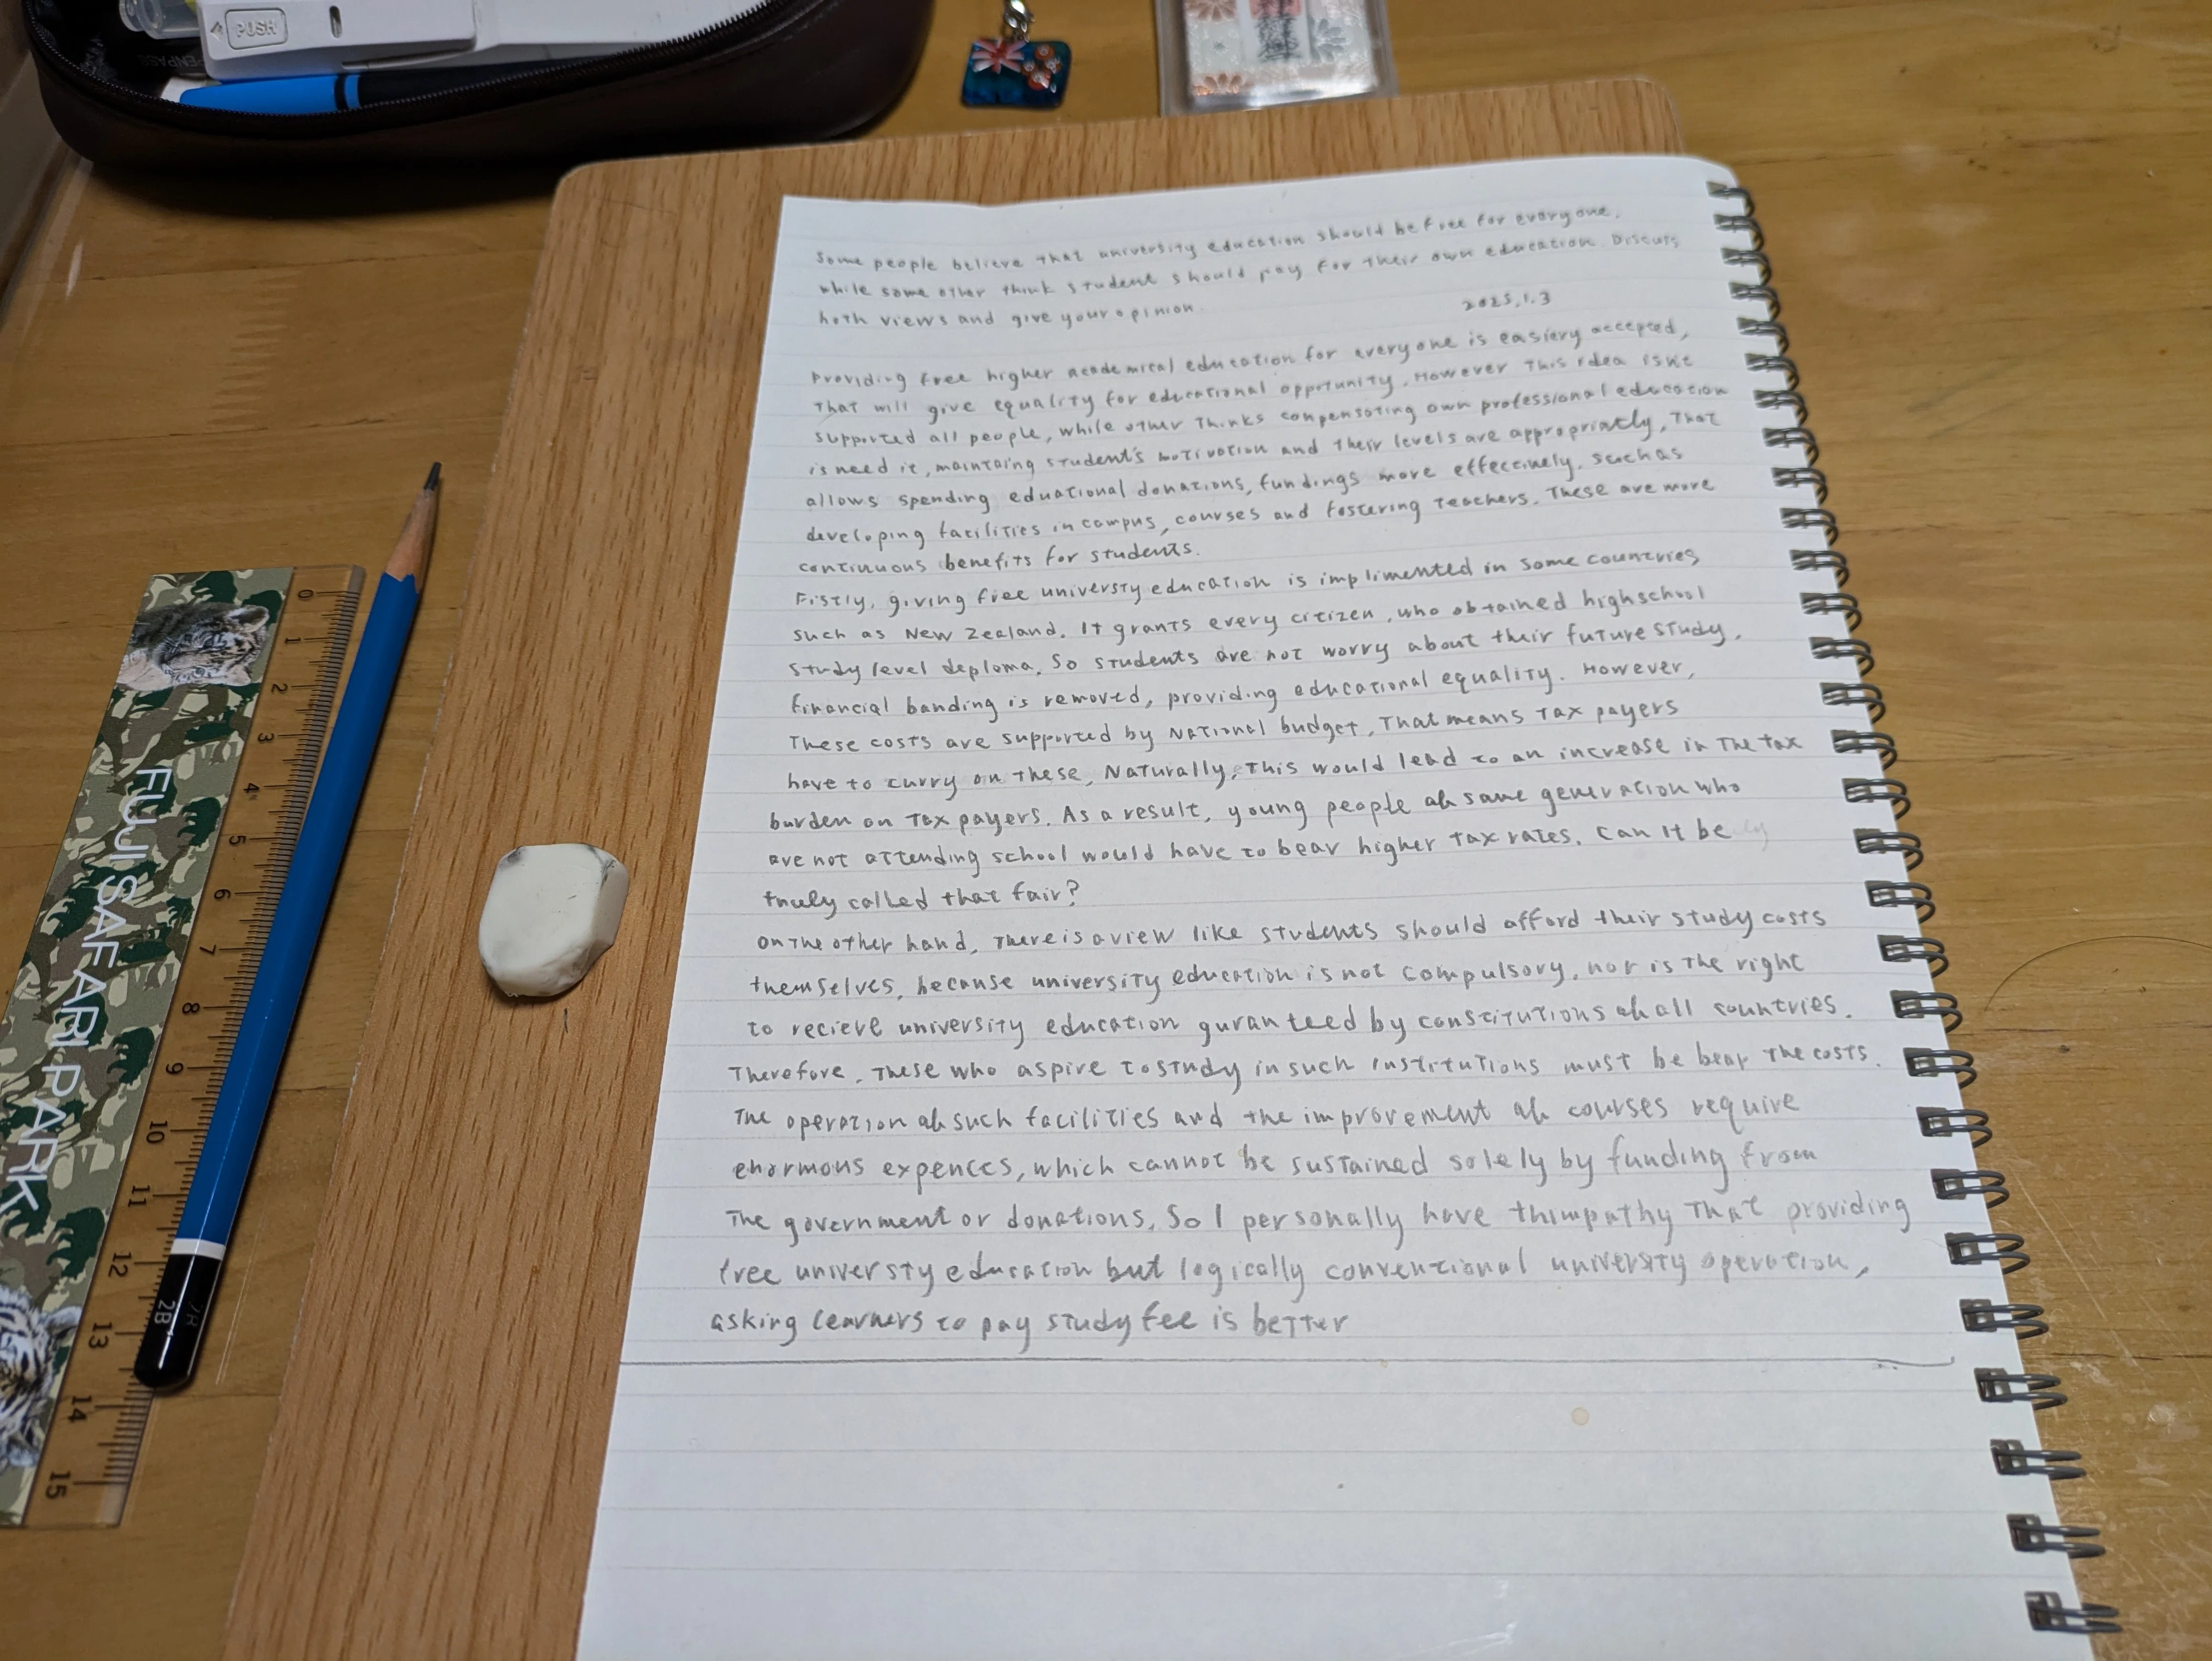 PUSH
Some people believe that university education should be free for everyone,
while some other think student should pay for their own education. Discuss
both views and give your opinion.
2025.1.3
Providing free higher academical education for everyone is easiery accepted,
That will give equality for educational opprtunity. However This idea isnt
supported all people, while other Thinks conpensating own professional education
is need it, maintaing student's motivation and their levels are appropriatly, That
allows spending eduational donations, fundings more effectinely. such as
developing facilities in campus, courses and fostering teachers. These are more
continuous benefits for students.
Fistly, giving free universty education is implimented in some countries
such as New Zealand. It grants every citizen, who obtained highschool
study level deploma. So students are not worry about their future study.
financial banding is removed, providing educational equality. However,
These costs are supported by National budget, That means Tax payers
have to curry on these, Naturally, This would lead to an increase in The tax
burden on Tax payers. As a result, young people of same generation who
are not attending school would have to bear higher Tax rates. Can It be
truly called that fair?
On The other hand, There is a view like students should afford their study costs
themselves, because university education is not compulsory, nor is The right
to recieve university education guranteed by constitutions of all countries.
Therefore, These who aspire to study in such institutions must be bear The costs.
The operation of such facilities and the improvement of courses require
enormous expences, which cannot be sustained solely by funding from
The government or donations. So I personally have thimpathy That providing
free universty education but logically conventional university operation,
asking learners to pay study fee is better
0
1
2
3
4
5
6
7
8
9
10
11
12
13
14
15
FUJI SAFARI PARK
2B